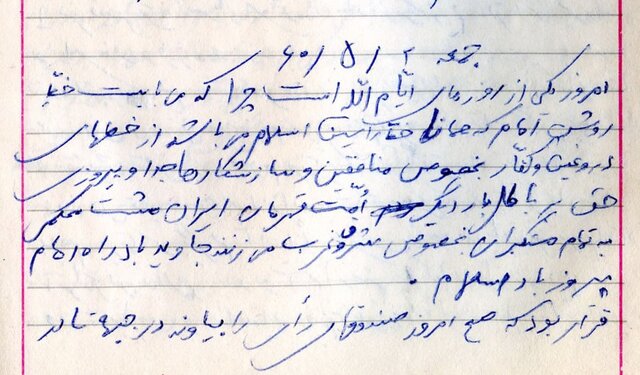 جمعه ۶۰/۵/۲
امروز یکی از روزهای ایّام الله است چرا که می بایست خطّ
روشن امام که همانا خط راستین اسلام می باشد از خطهای
دروغین و کفّار بخصوص منافقین و سازشکارها جدا و پیروزی
حق بر باطل بار دیگر امّت قهرمان ایران مشت محکمی
به تمام مستکبران بخصوص شرق و غرب می زنند جاوید باد راه امام
پیروز باد اسلام .
قرار بود که صبح امروز صندوقهای رأی را بیاورند در جبهه تا در